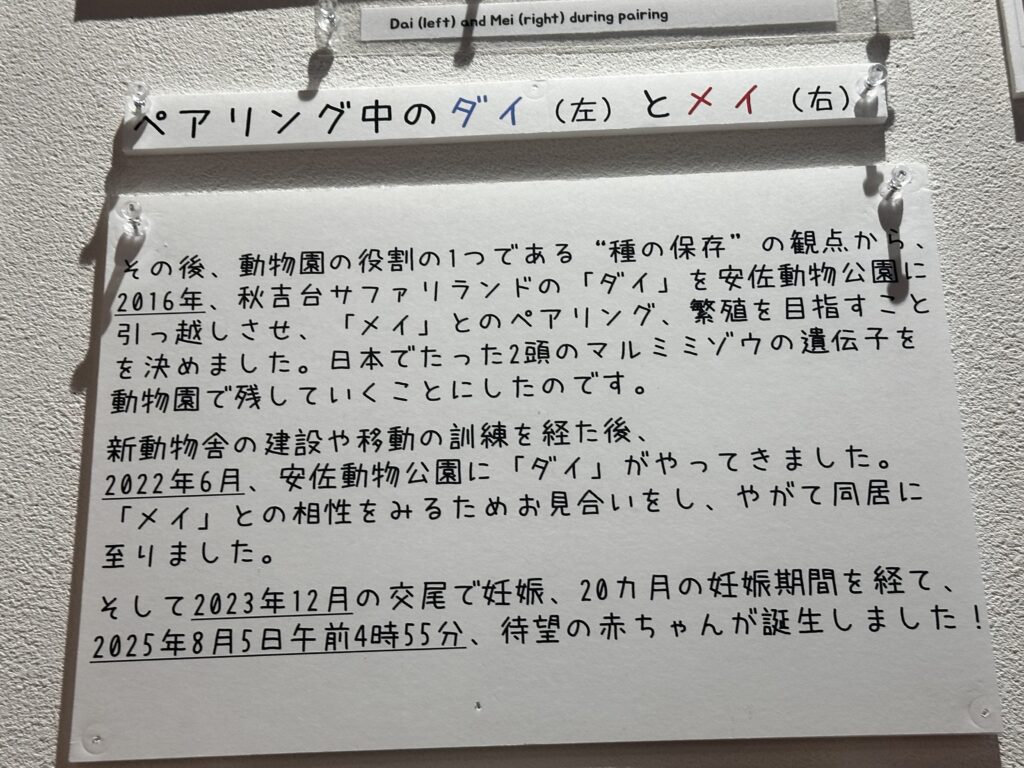 Dai (left) and Mei (right) during pairing
ペアリング中のダイ（左）とメイ（右）
その後、動物園の役割の1つである“種の保存”の観点から、
2016年、秋吉台サファリランドの「ダイ」を安佐動物公園に
引っ越しさせ、「メイ」とのペアリング、繁殖を目指すこと
を決めました。日本でたった2頭のマルミミゾウの遺伝子を
動物園で残していくことにしたのです。
新動物舎の建設や移動の訓練を経た後、
2022年6月、安佐動物公園に「ダイ」がやってきました。
「メイ」との相性をみるためお見合いをし、やがて同居に
至りました。
そして2023年12月の交尾で妊娠、20カ月の妊娠期間を経て、
2025年8月5日午前4時55分、待望の赤ちゃんが誕生しました！